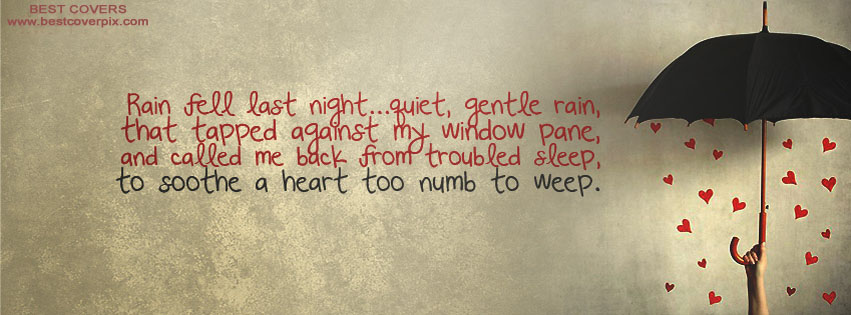 BEST COVERS
www.bestcoverpix.com
Rain fell last night...quiet, gentle rain,
that tapped against my window pane,
and called me back from troubled sleep,
to soothe a heart too numb to weep.